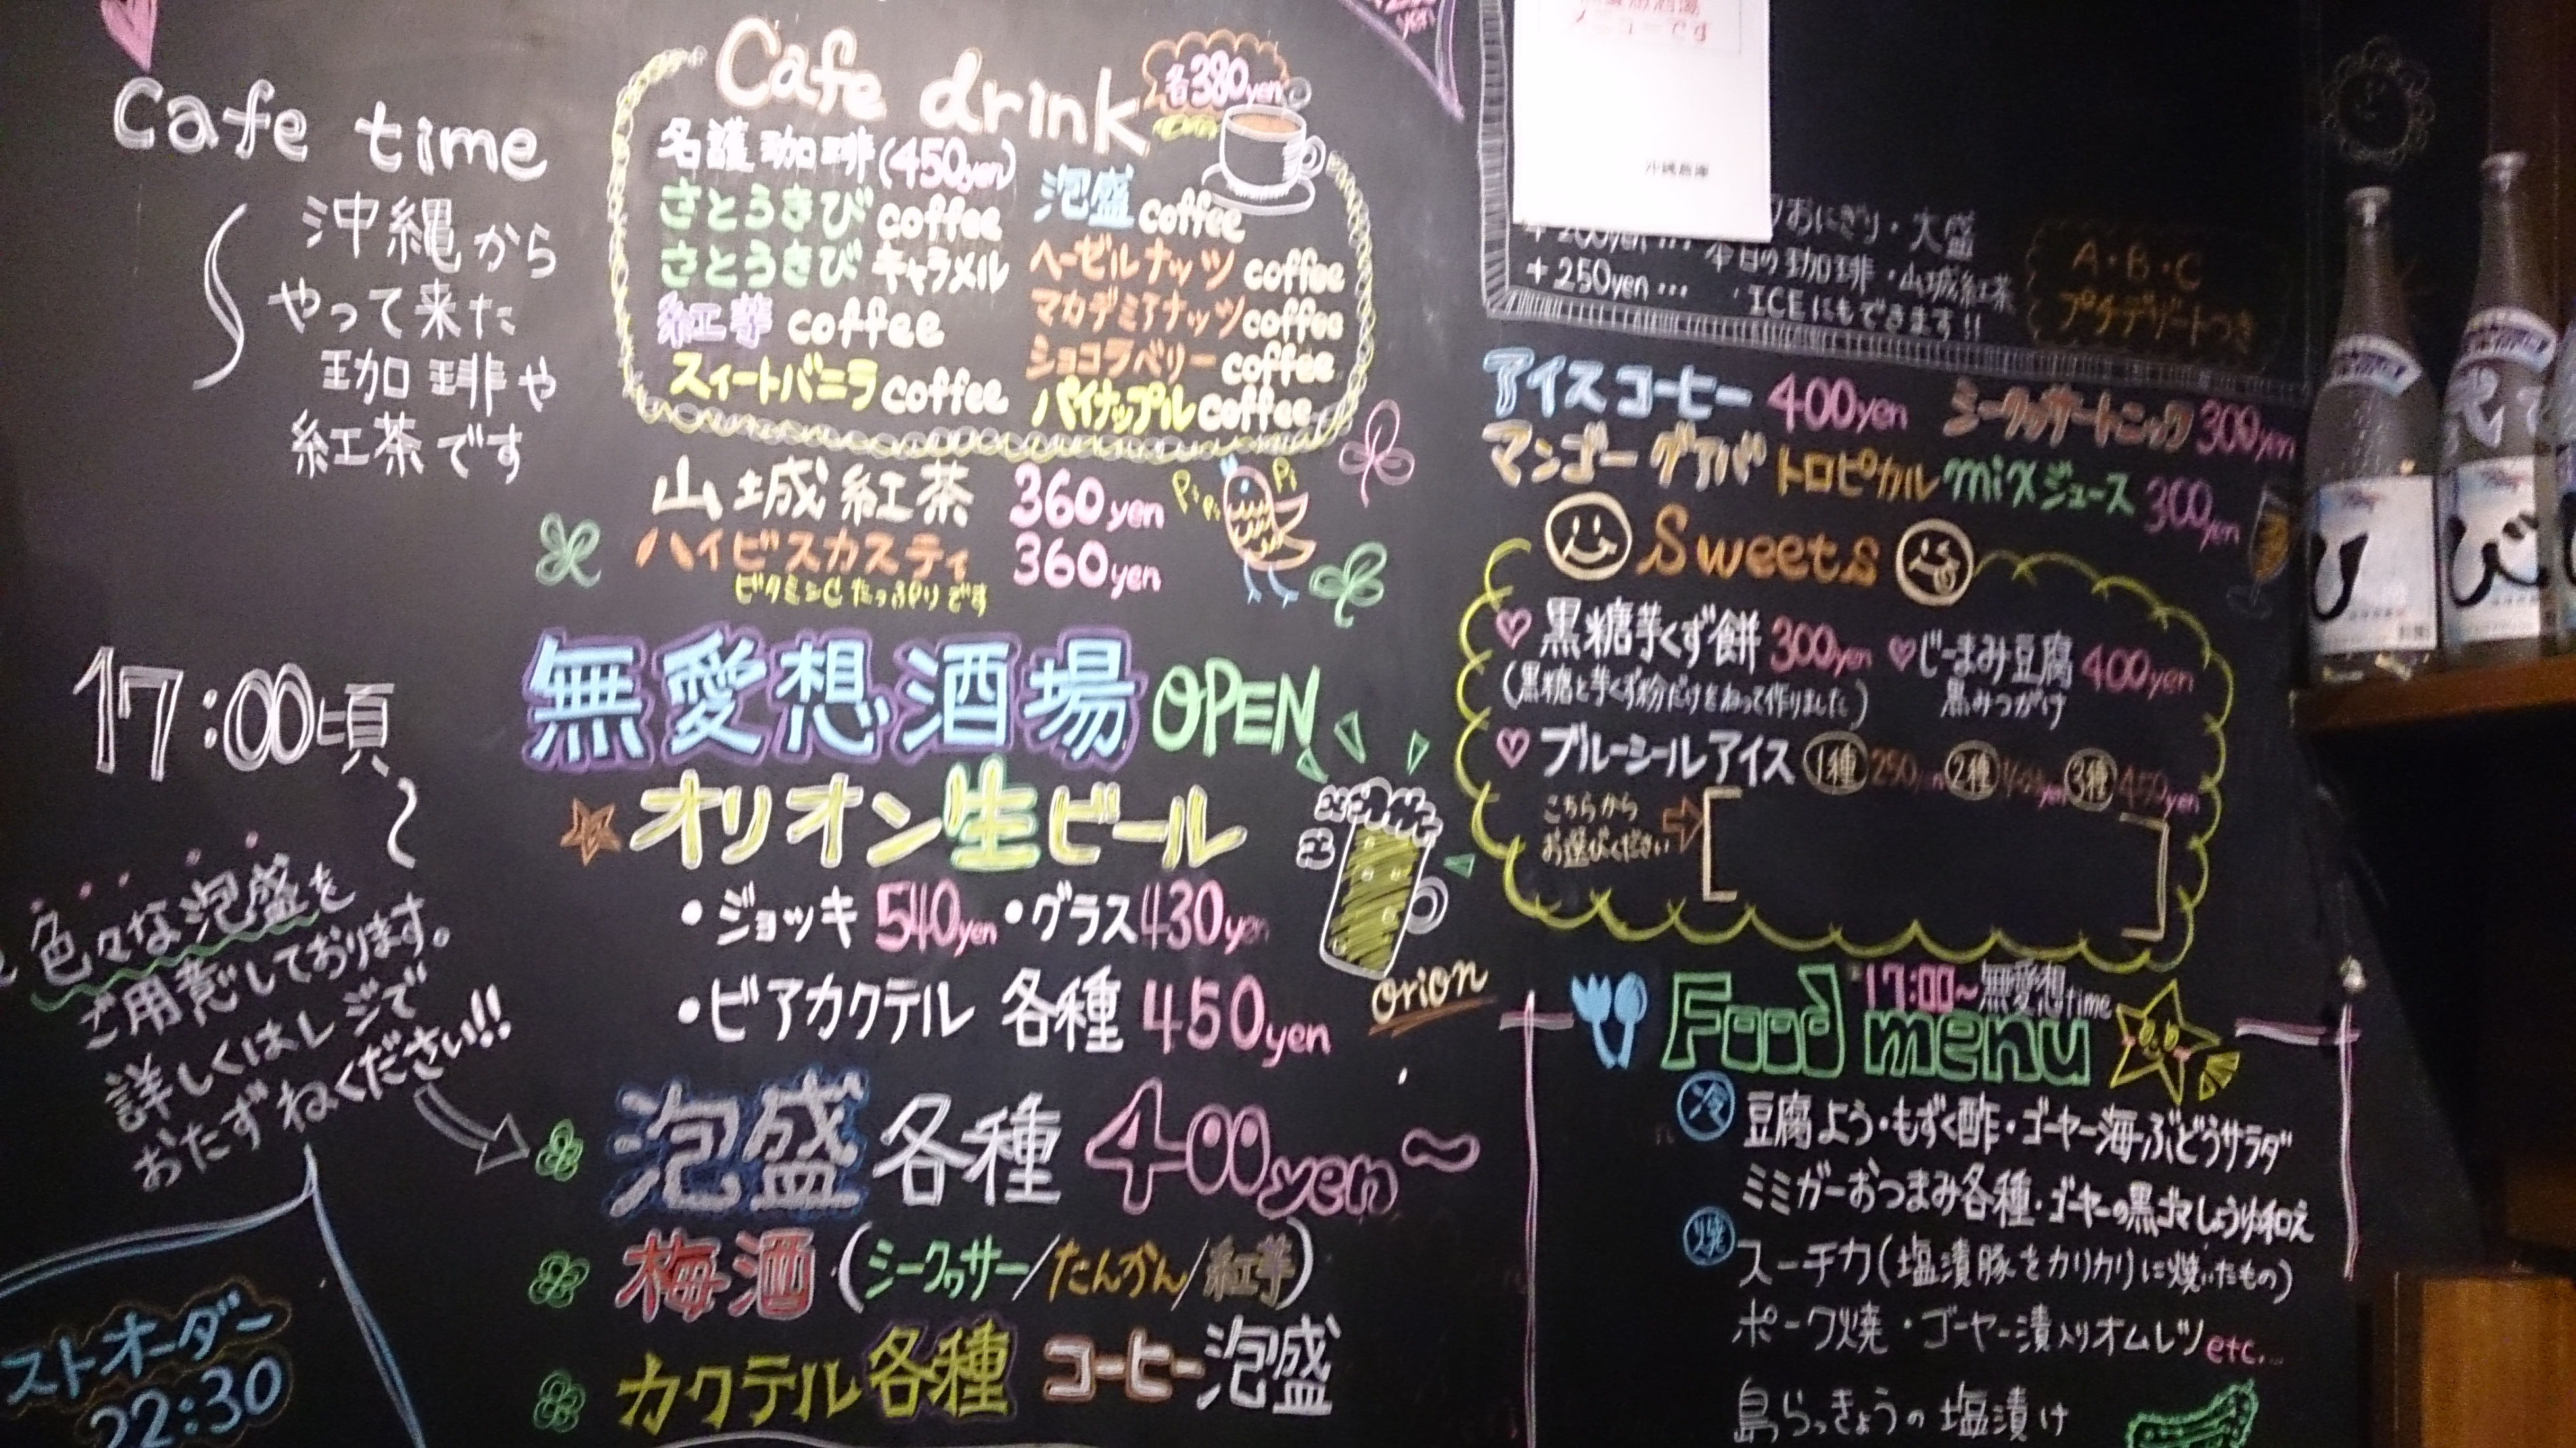 Cafe time
沖縄から
やって来た
珈琲や
紅茶です
Cafe drink 各380yen
名護珈琲(450yen)
さとうきび coffee
さとうきび キャラメル
紅芋 coffee
スィートバニラ coffee
泡盛 coffee
ヘーゼルナッツ coffee
マカデミアナッツ coffee
ショコラベリー coffee
パイナップル coffee
山城紅茶 360yen
ハイビスカスティ 360yen
ビタミンCたっぷりです
17:00頃〜
無愛想酒場 OPEN
オリオン生ビール
・ジョッキ 540yen ・グラス 430yen
・ビアカクテル 各種 450yen
orion
色々な泡盛を
ご用意しております。
詳しくはレジで
おたずねください!!
泡盛 各種 400yen〜
梅酒 (シークヮサー/たんかん/紅芋)
カクテル各種 コーヒー泡盛
ストオーダー
22:30
メニューです
おにぎり・大盛
+200yen… 本日の珈琲・山城紅茶
+250yen… ・ICEにもできます!!
A・B・C
プチデザートつき
アイスコーヒー 400yen シークヮサートニック 300yen
マンゴー グァバ トロピカル mixジュース 300yen
Sweets
黒糖芋くず餅 300yen
(黒糖と芋くず粉だけをねって作りました)
じーまみ豆腐 400yen
黒みつがけ
ブルーシールアイス 1種 250yen 2種 3種 450yen
こちらから
お選びください
17:00〜無愛想time
Food menu
冷 豆腐よう・もずく酢・ゴーヤー海ぶどうサラダ
ミミガーおつまみ各種・ゴーヤーの黒ゴマしょうゆ和え
焼 スーチカ(塩漬豚をカリカリに焼いたもの)
ポーク焼・ゴーヤー漬入りオムレツ etc...
島らっきょうの塩漬け